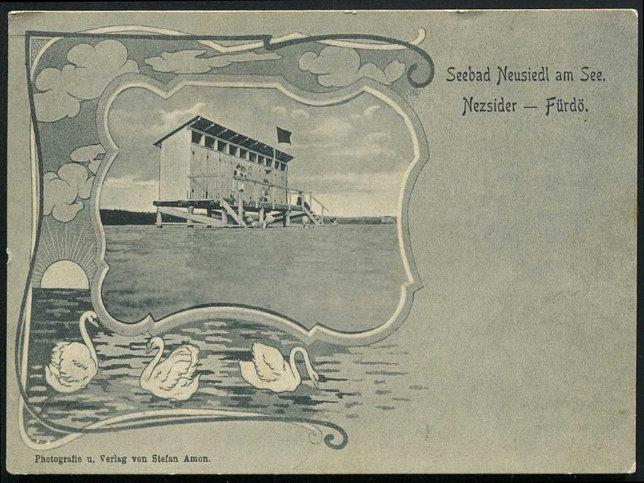 Seebad Neusiedl am See.
Nezsider — Fürdö.
Photografie u. Verlag von Stefan Amon.